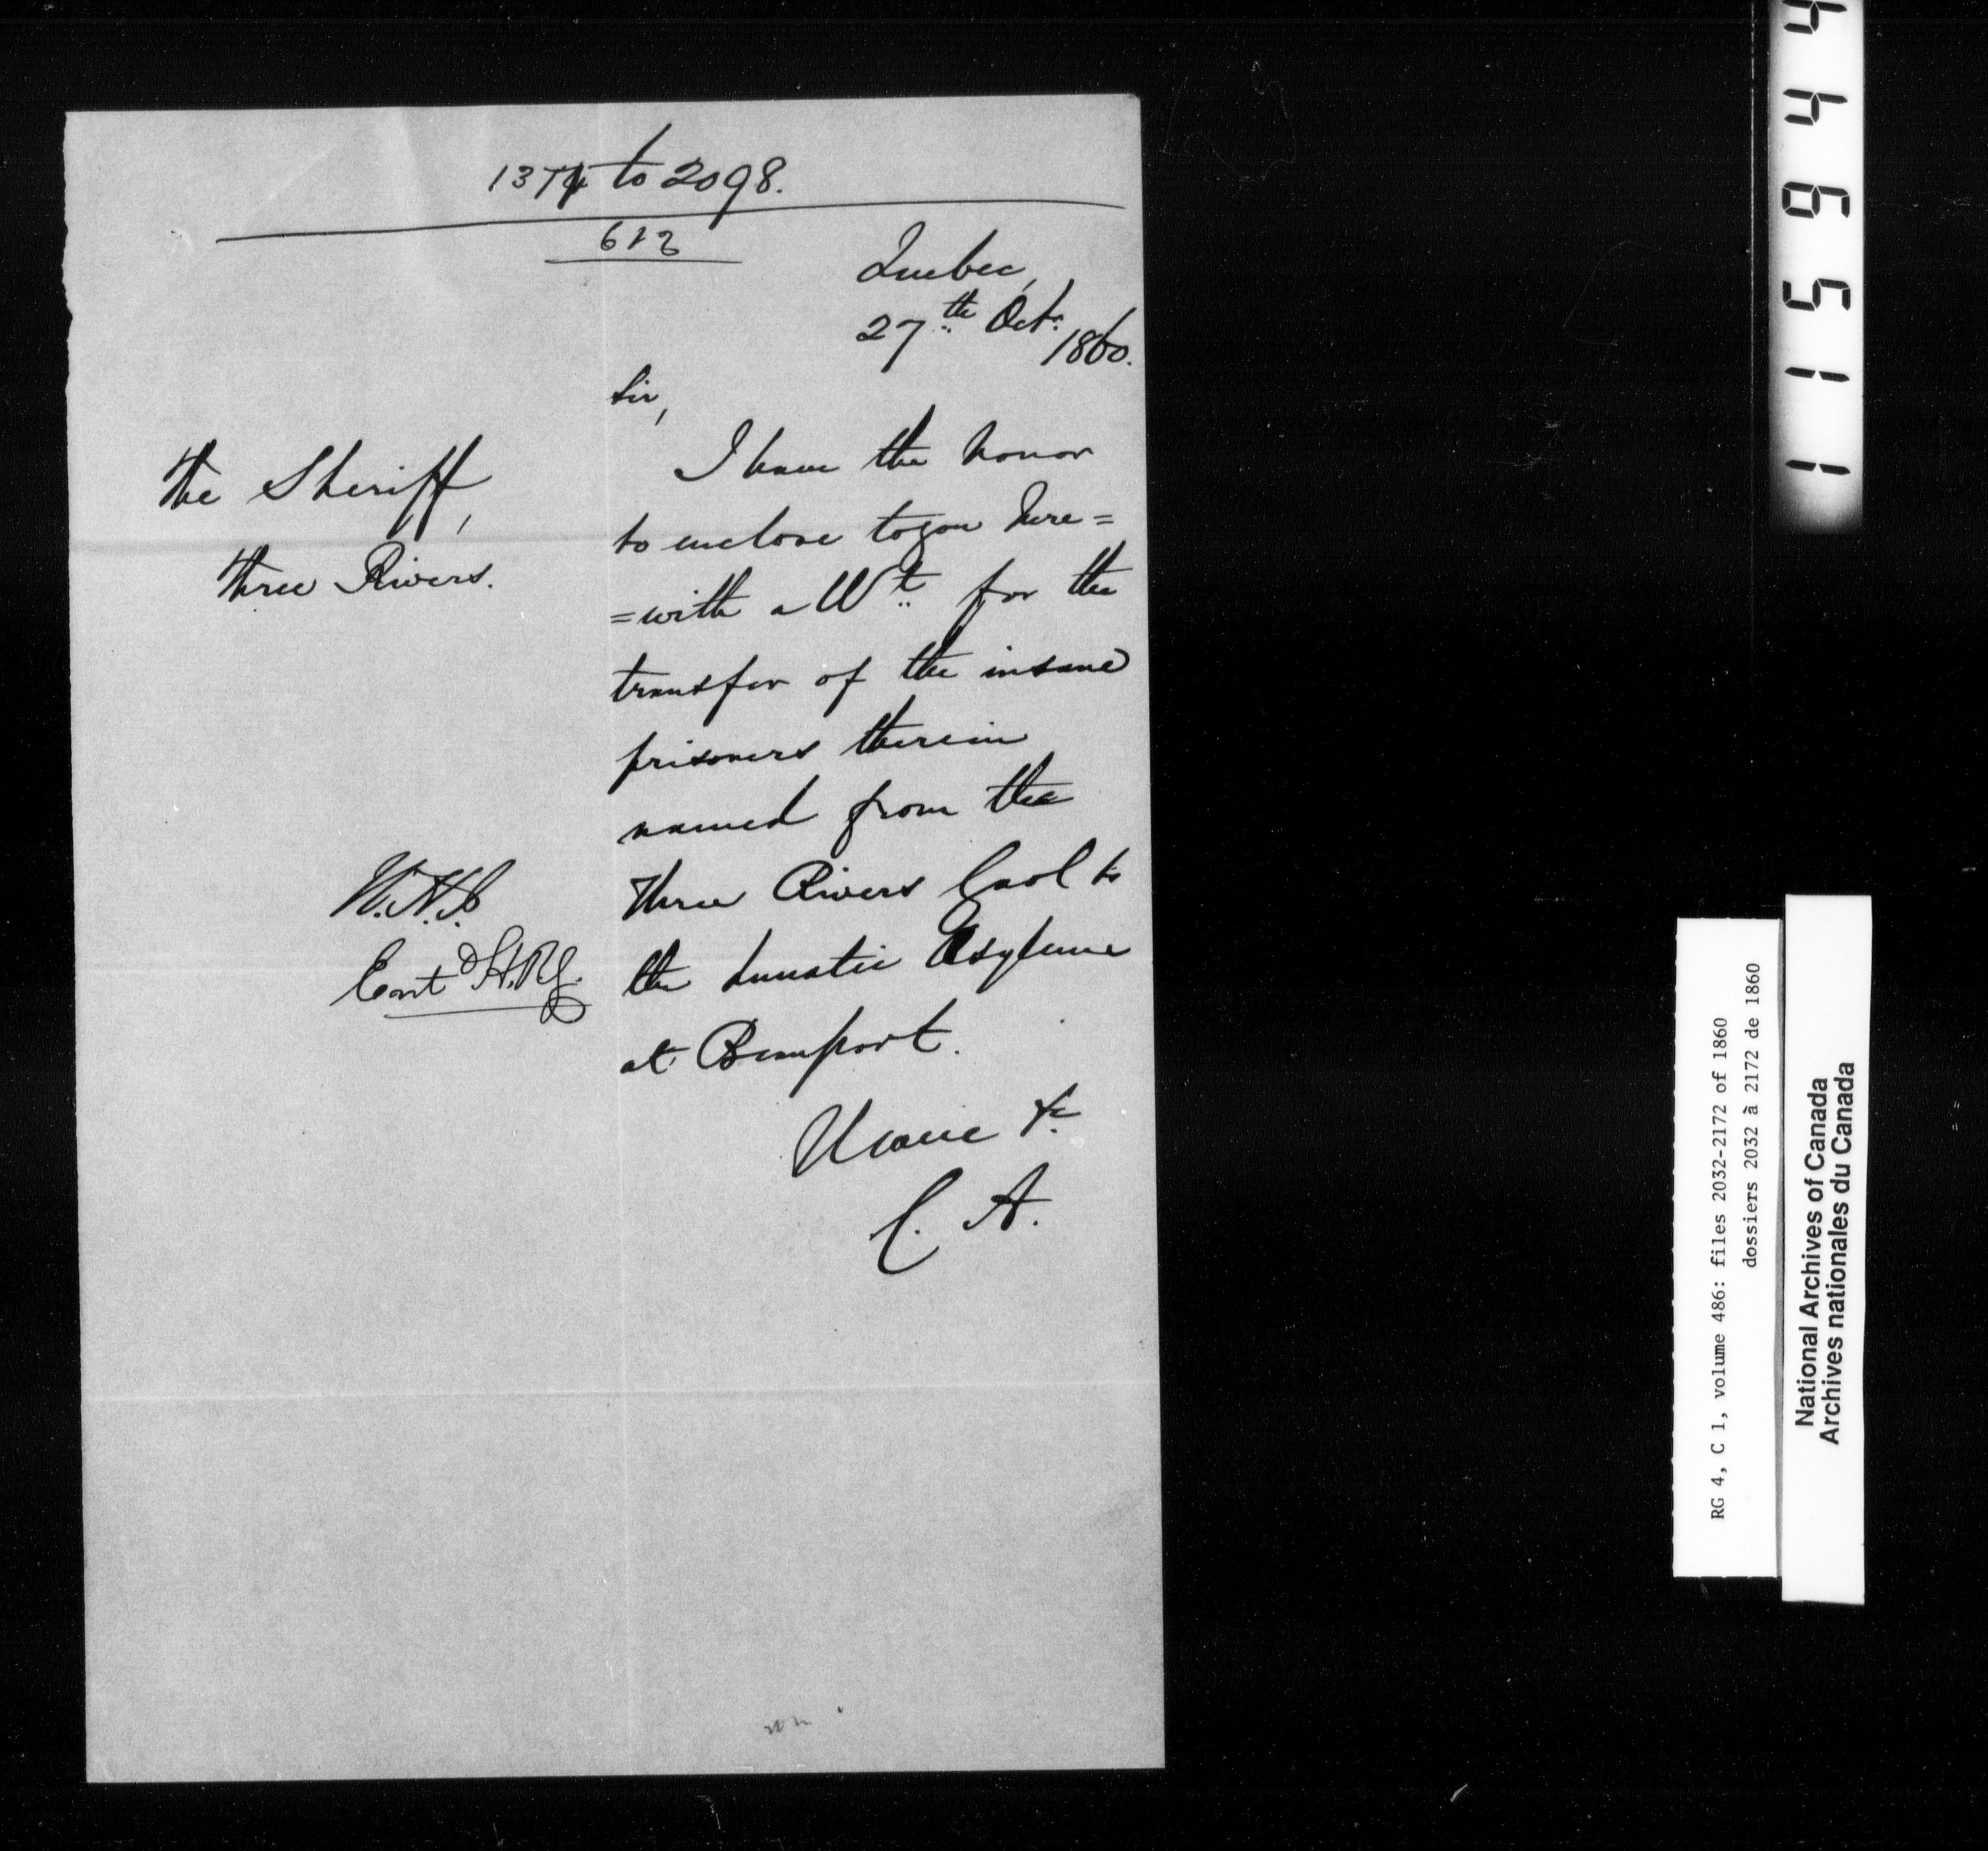 1374 to 2098.
612
Quebec,
27th Octr.
1860.
Sir,
The Sheriff,
Three Rivers.
I have the honor
to enclose to you here=
=with a Wt. for the
transfer of the insane
prisoners therein
named from the
Three Rivers Gaol to
the Lunatic Asylum
at Beauport.
I have &c
C. A.
Ent
RG 4, C 1, volume 486: files 2032-2172 of 1860
dossiers 2032 à 2172 de 1860
National Archives of Canada
Archives nationales du Canada
115944